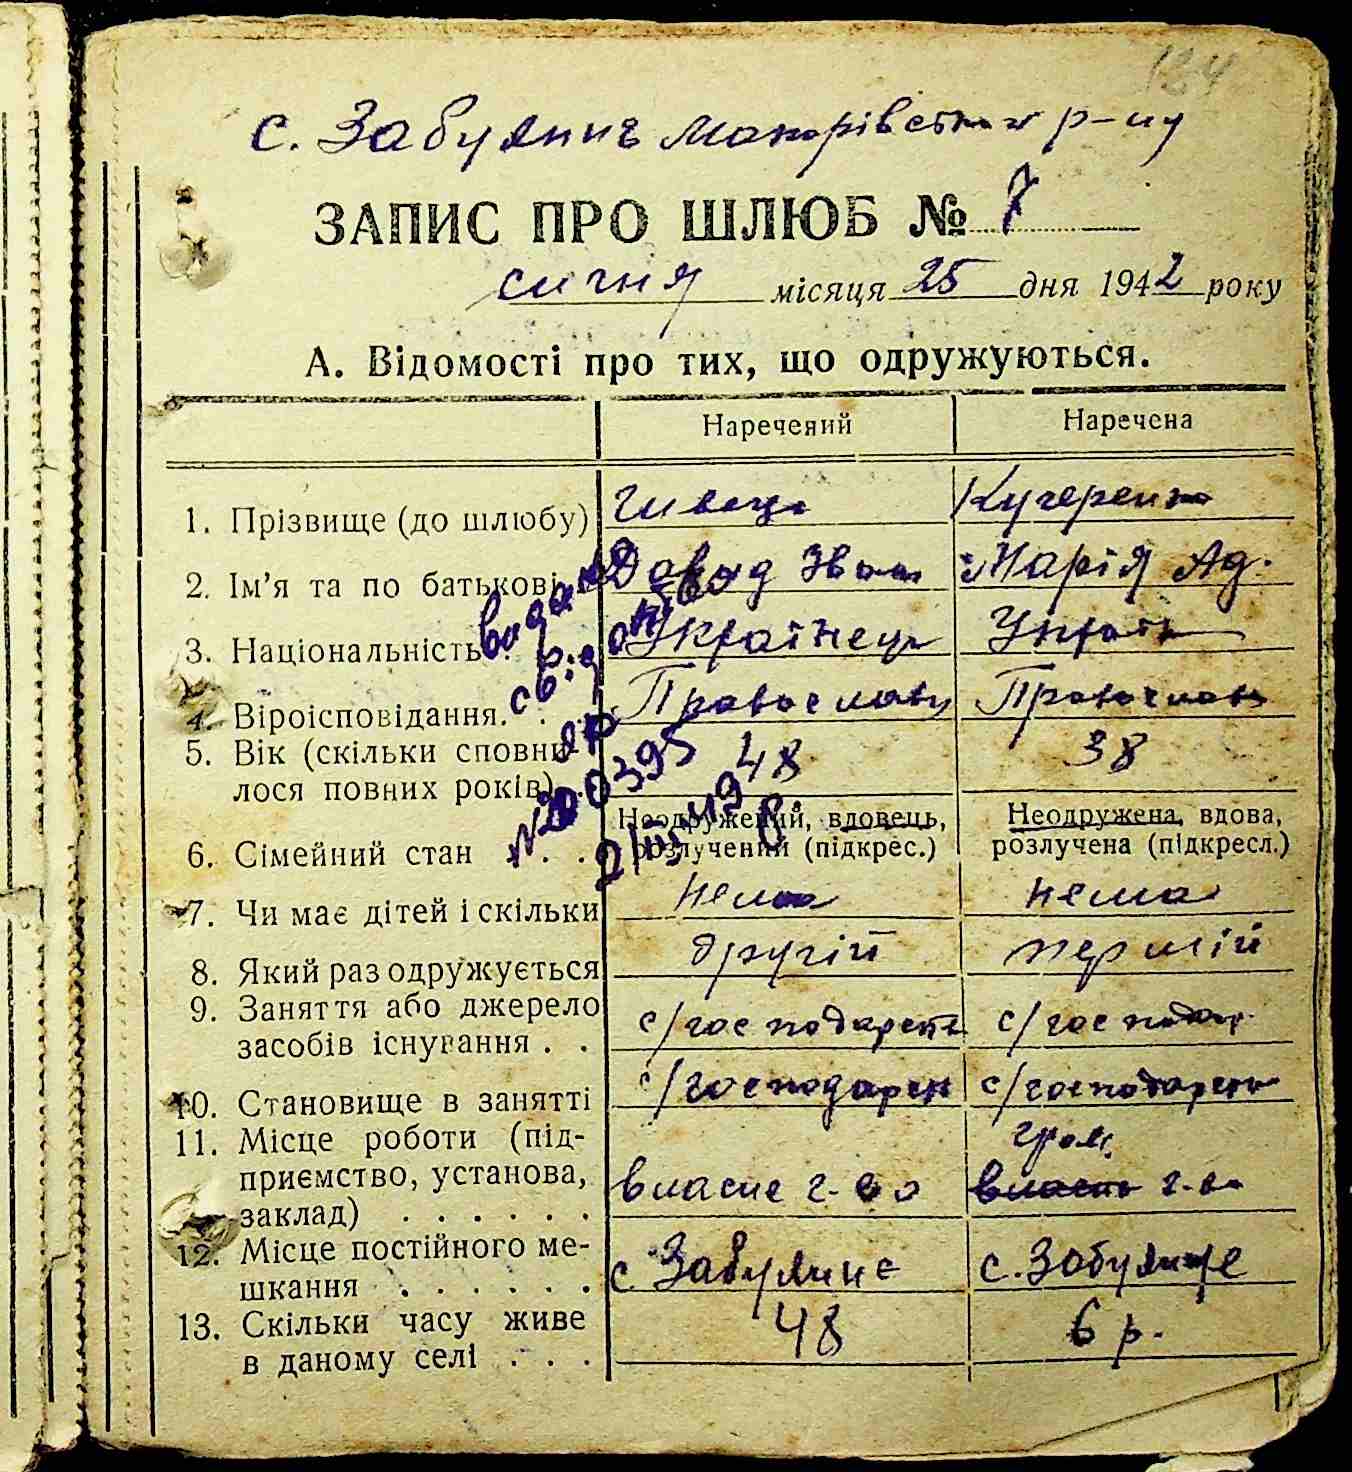 134
с. Забуяння Макарівського р-ну
ЗАПИС ПРО ШЛЮБ № 7
січня місяця 25 дня 1942 року
А. Відомості про тих, що одружуються.
Наречений Наречена
1. Прізвище (до шлюбу) Кучеренко
2. Ім'я та по батькові Давид Іван Марія Ад.
3. Національність Українець Україн
4. Віроісповідання. Православн Православн
5. Вік (скільки сповни-
лося повних років) 48 38
Неодружений, вдовець, Неодружена, вдова,
6. Сімейний стан розлучений (підкрес.) розлучена (підкресл.)
7. Чи має дітей і скільки нема нема
8. Який раз одружується другій перший
9. Заняття або джерело
засобів існування . . с/господарств с/господар.
10. Становище в занятті с/господарст с/господарств
11. Місце роботи (під- гром.
приємство, установа, власне г-во власне г-во
заклад) . . . . . .
12. Місце постійного ме- с Забуяння с. Забуяння
шкання . . . . . .
13. Скільки часу живе 48 6 р.
в даному селі . . .
видане
№ 200395